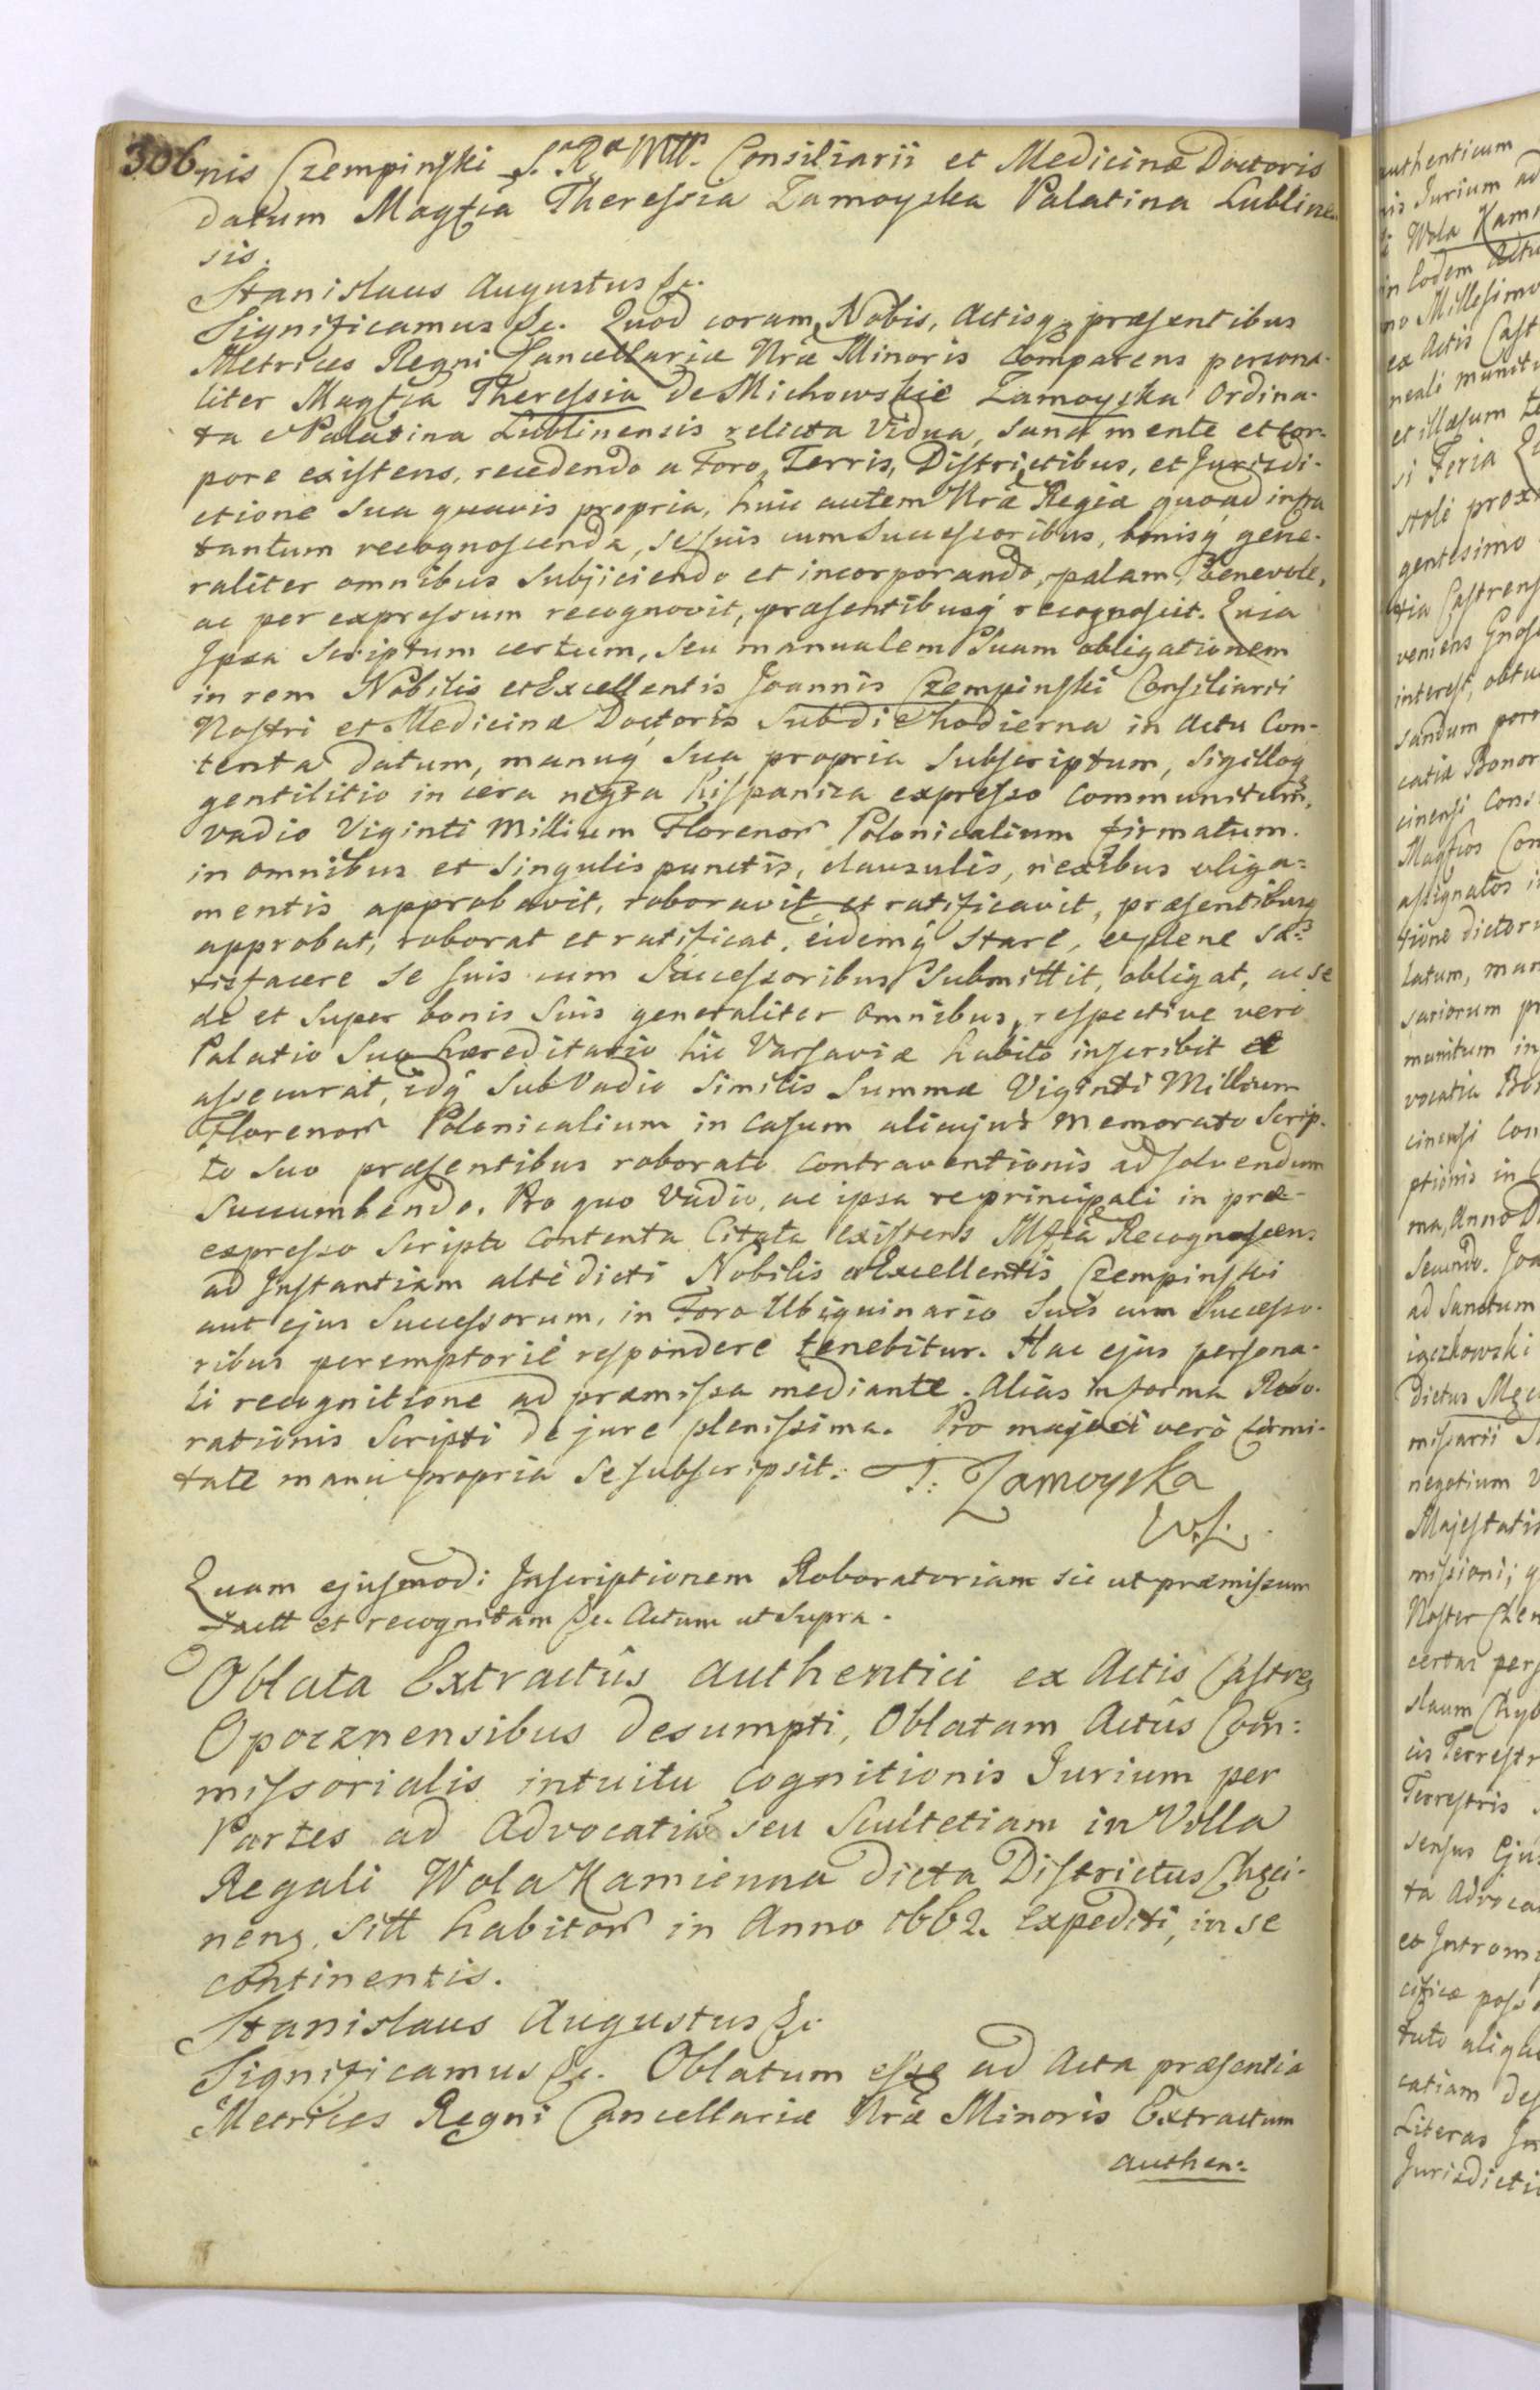 306 nis Czempinski S. Rᵃ Mttis Consiliarii et Medicinæ Doctoris
datum Magfca Theressia Zamoyska Palatina Lublinen
sis.
Stanislaus Augustus &c.
Significamus &c. Quod coram Nobis, Actisq præsentibus
Metrices Regni Cancellariæ Nræ Minoris Comparens persona-
liter Magfca Theressia de Michowskie Zamoyska Ordina-
ta Palatina Lublinensis relicta Vidua, sana mente et cor-
pore existens, recedendo a Foro, Terris, Districtibus, et Jurisdi-
ctione sua quavis propria, huic autem Nræ Regiæ quoad infra
tantum recognoscenda, se suis cum Successoribus, bonisq gene-
raliter omnibus subjiciendo et incorporando, palam, benevole,
ac per expressum recognovit, præsentibusq recognoscit. Quia
Ipsa Scriptum certum, seu manualem Suam obligationem
in rem Nobilis et Excellentis Joannis Czempinski Consiliarii
Nostri et Medicinæ Doctoris sub die hodierna in Actu Con-
tenta datum, manuq sua propria subscriptum, sigilloq
gentilitio in cera nigra hispanica expresso communitum,
vadio Viginti Millium Florenor Polonicalium firmatum.
in omnibus et singulis punctis, clausulis, nexibus obliga=
mentis approbavit, roboravit et ratificavit, præsentibusq
approbat, roborat et ratificat, eidemq stare, et plene sa=
tisfacere se suis cum Successoribus submittit, obligat, ac se
de et super bonis suis generaliter omnibus, respective vero
Palatio suo hæreditario hic Varsaviæ habito inscribit et
assecurat, idq sub Vadio similis Summæ Viginti Millium
Florenor Polonicalium in casum alicujus memorato Scrip-
to suo præsentibus roborato contraventionis adsolvendum
succumbendo. Pro quo Vadio, ac ipsa re principali in præ-
expresso Scripto contenta Citata existens Mfca Recognoscens
ad Instantiam altè dicti Nobilis et Excellentis Czempinski
aut ejus Successorum, in Foro Ubiquinario suis cum Successo-
ribus peremptoriè respondere tenebitur. Hac ejus persona-
li recognitione ad præmissa mediante. Alias in forma Robo-
rationis Scripti de jure plenissima. Pro majori verò firmi-
tate manu propria se subscripsit. T: Zamoyska
W.L.
Quam ejusmodi Inscriptionem Roboratoriam sic ut præmissum
factt et recognitam &c. Actum ut Supra.
Oblata Extractûs authentici ex Actis Castren
Opocznensibus desumpti, Oblatam Actûs Com:
missorialis intuitu Cognitionis Jurium per
Partes ad Advocatiã seu Scultetiam in Villa
Regali Wola Kamienna dicta Districtus Chęci-
nens. sitt habitor in Anno 1662. Expediti, in se
continentis.
Stanislaus Augustus &c.
Significamus &c. Oblatum esse ad Acta præsentia
Metrices Regni Cancellariæ Nræ Minoris Extractum
authen:
authenticum
Jurium ad
Wola Kami
in Eodem Actu
no Millesimo
ex Actis Cast
neali munitu
et illæsum
si Feria
stoli prox
gentesimo
tia Castrens
veniens
interest, obtu
sandum
catiæ Bonor
cinensi Cons
Magfcos Com
assignatos i
tione dictoru
Latum, man
sariorum pr
munitum in
vocatia
cinensi Con
ptionis in
ma, Anno D
Secundo. Joa
ad Sanctum
dictus
missarii
negotium
Majestatis
missioni; q
Noster
certas pers
slaum
cis Terrestr
Terrestris
sensus Eju
ta Advoca
et Introm
cificæ poss
tuto aliqu
catiam des
Literas
Jurisdicti